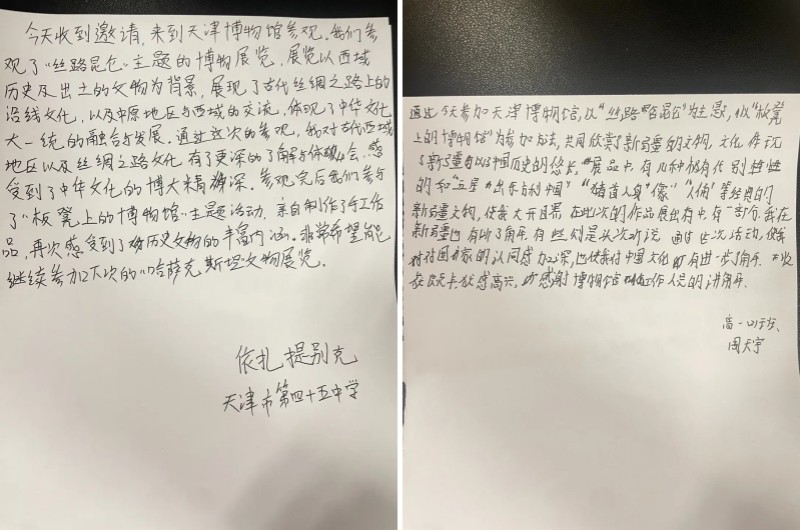 今天收到邀请，来到天津博物馆参观。我们参
观了“丝路昆仑”主题的博物展览，展览以西域
历史及出土的文物为背景，展现了古代丝绸之路上的
沿线文化，以及中原地区与西域的交流，体现了中华文化
大一统的融合与发展。通过这次的参观，我对古代西域
地区以及丝绸之路文化有了更深的了解与体会，感
受到了中华文化的博大精深。参观完后我们参与
了“板凳上的博物馆”主题活动，亲自制作了手工作
品，再次感受到了历史文物的丰富内涵。非常希望能
继续参加下次的“哈萨克斯坦”文物展览。
依扎提·别克
天津市第四十五中学
通过今天参加天津博物馆，以“丝路昆仑”为主题，以“板凳
上的博物馆”为参加方法，共同欣赏了新疆的文物，文化作
了新疆与中国历史的悠长，展品中，有几种极有代性
的和“五星出东方利中国”“猪首人身像”“人俑”等经典的
新疆文物，使我大开目界，在此次的作品展出有中有一部分我在
新疆也有所了解，有些则是头次听说，通过此次活动，使我
对国家的认同感加深，也使我对中国文化有进一步了解，
在此我感高兴，感谢博物馆工作人员的讲解。
高一
周天宇